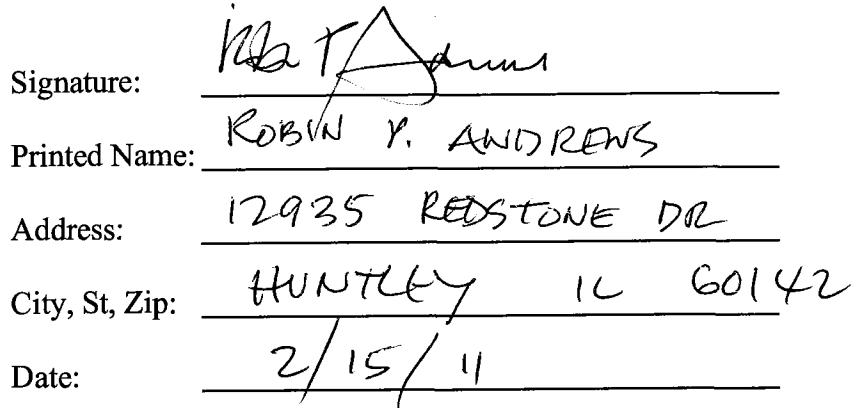 Signature:
Printed Name: ROBIN P. ANDREWS
Address: 12935 REDSTONE DR
City, St, Zip: HUNTLEY IL 60142
Date: 2/15/11